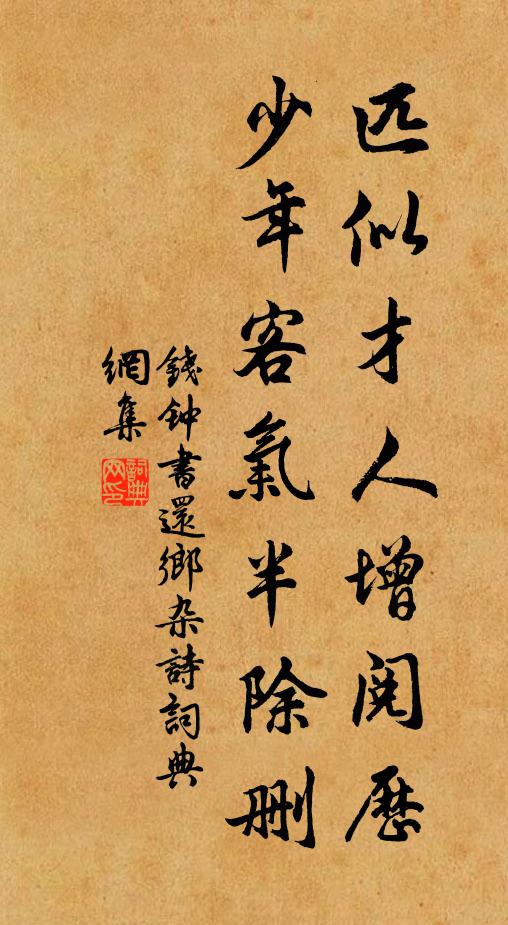 匹似才人增閱歷
少年客氣半除刪
錢钟書還鄉杂詩詞典
網集
詞典網印